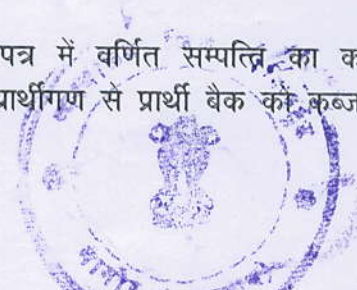 पत्र में वर्णित सम्पत्ति का क
प्रार्थीगण से प्रार्थी बैक को कब्ज